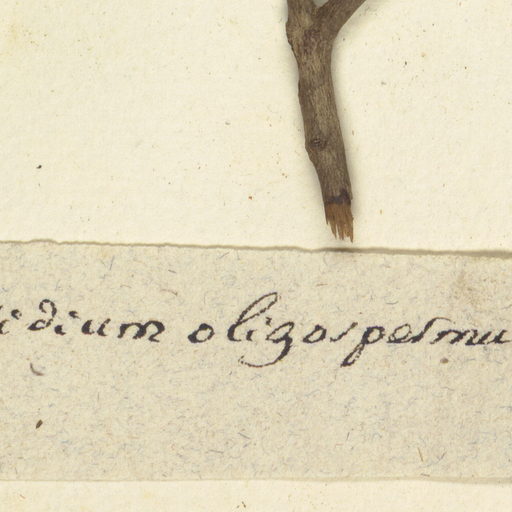 idium oligospermu